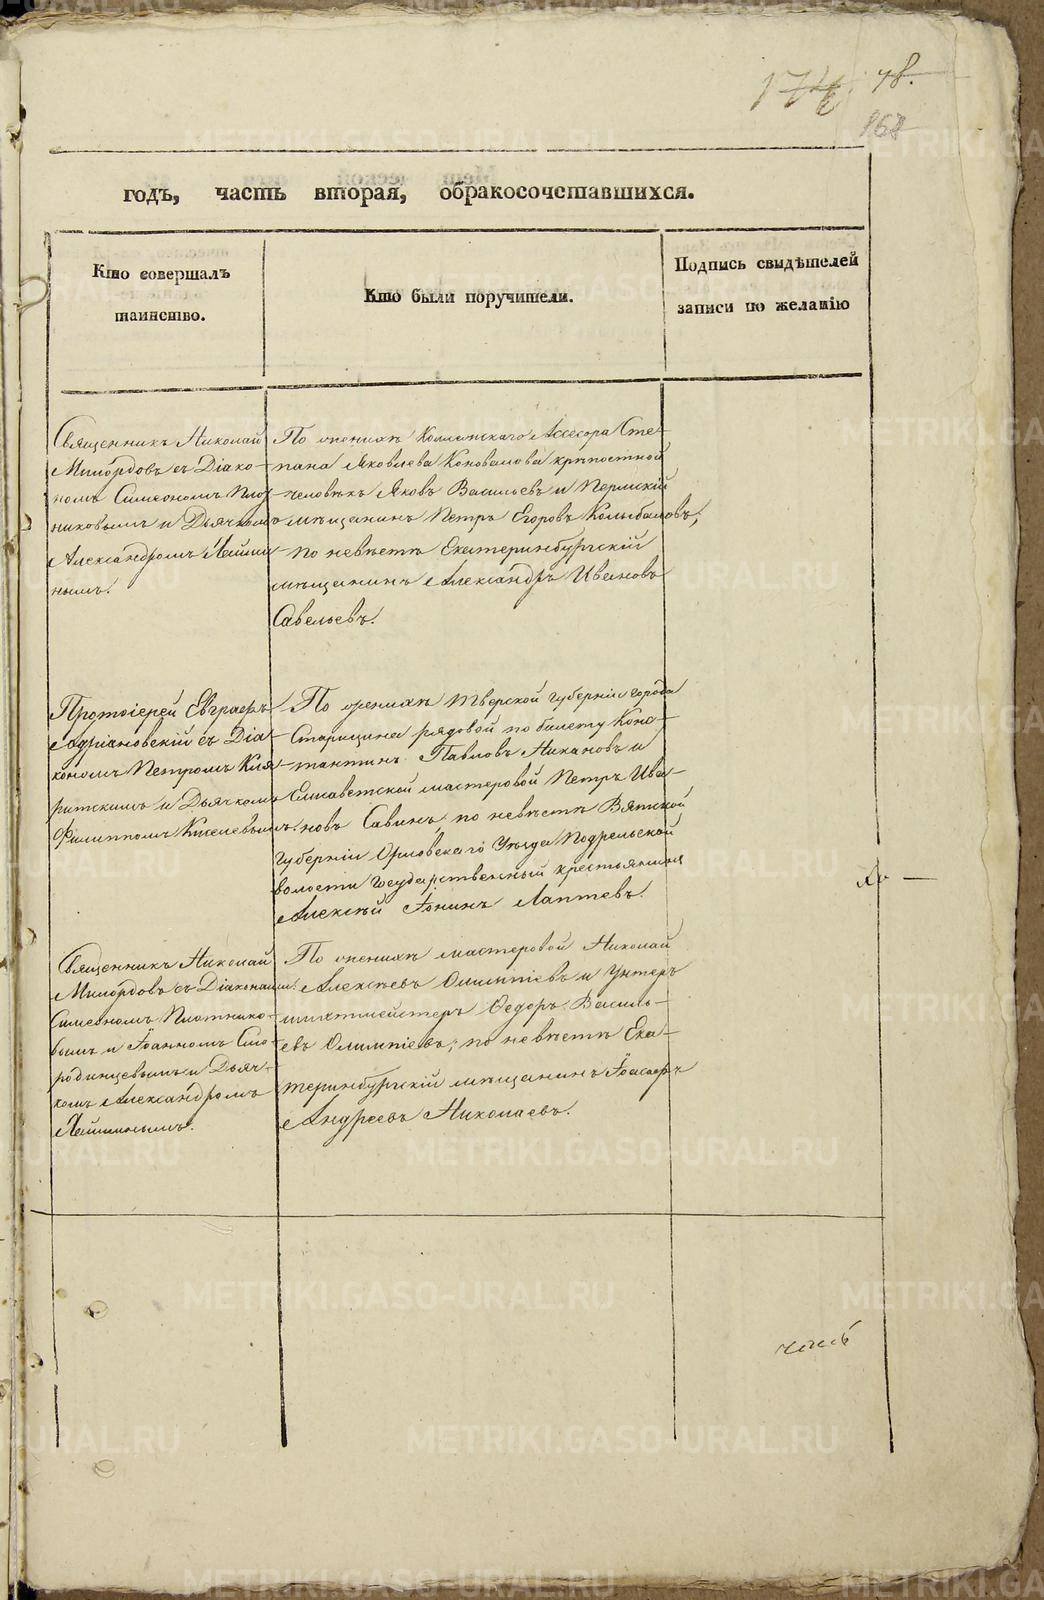 174 78.
168
годъ, часть вторая, обракосочетавшихся.
Кто совершалъ
таинство.
Кто были поручители.
Подпись свидѣтелей
записи по желанію
Священникъ Николай
Милордовъ съ Діако-
номъ Симеономъ Плот-
никовымъ и Дьячкомъ
Александромъ
нымъ.
По женихѣ Коллежскаго Ассесора Сте-
пана Яковлева Коновалова крѣпостной
человѣкъ Яковъ Васильевъ и Пермскій
мѣщанинъ Петръ Егоровъ Колыбаловъ,
по невѣстѣ Екатеринбургскій
мѣщанинъ Александръ Ивановъ
Савельевъ.
Протоіерей Евграфъ
Адріановскій съ Діа-
кономъ Петромъ
и Дьячкомъ
Филиппомъ Киселевымъ.
По женихѣ Тверской губерніи города
Старицына рядовой по билету Конс-
тантинъ Павловъ Никановъ и
Елисаветской мастеровой Петръ Ива-
новъ Савинъ, по невѣстѣ Вятской
губерніи Орловскаго Уѣзда Подрельской
волости Государственный крестьянинъ
Алексѣй Іонинъ Лаптевъ.
Священникъ Николай
Милордовъ съ Діаконами
Симеономъ Плотнико-
вымъ и Іоанномъ Смо-
родинцевымъ и Дьяч-
комъ Александромъ
По женихѣ мастеровой Николай
Алексѣевъ Олимпіевъ и Унтеръ
шихтмейстеръ Ѳедоръ Василь-
евъ Олимпіевъ; по невѣстѣ Ека-
теринбургскій мѣщанинъ Іоасафъ
Андреевъ Николаевъ.
METRIKI.GASO-URAL.RU